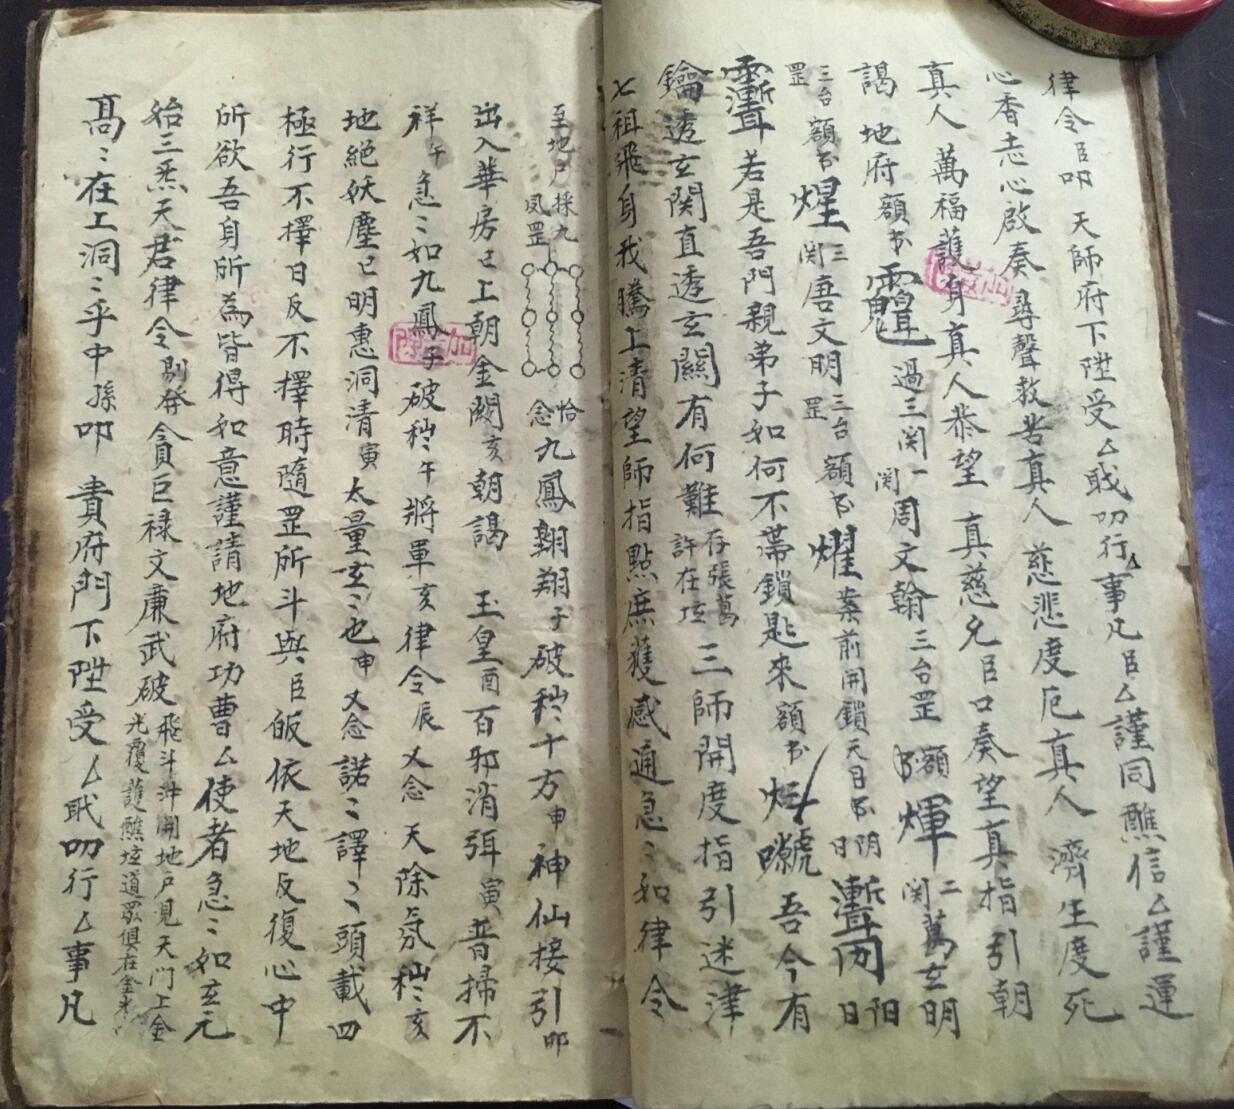 律令臣叩 天師府下陞受厶戝叨行厶事凡臣厶謹同醮信厶謹運
心香志心啟奏尋聲救苦真人 慈悲度厄真人 濟生度死
真人 萬福護身真人恭望 真慈允臣口奏望真指引朝
謁 地府額書 過三関一関周文翰三台罡額書煇二関萬玄明
三台罡額書煋三関唐文明三台罡額書燿業前開鎖天目書
若是吾門親弟子如何不帶鎖匙來額書 吾今有
鑰透玄関直透玄關有何難存張葛許在坛三師開度指引迷津
七祖飛身我騰上清望師指點庶獲感通急〻如律令
至地户採九凤罡 恰念九鳳翱翔子破穢〻十方申神仙接引叩
出入華房巳上朝金闕亥朝謁 玉皇酉百邪消弭寅普掃不
祥午急〻如九鳳子破穢午將軍亥律令辰又念天除氛穢〻亥
地絕妖塵巳明惠洞清寅太量玄〻也申又念諾〻譯〻頭載四
極行不擇日反不擇時隨罡所斗與臣皈依天地反復心中
所欲吾身所為皆得如意謹請地府功曹厶使者急〻如玄元
始三炁天君律令剔發貪巨禄文廉武破飛斗 開地户見天門上金光覆護醮坛道眾俱在金光〻
高〻在上洞〻乎中孫叩 貴府門下陞受厶戝叨行厶事凡